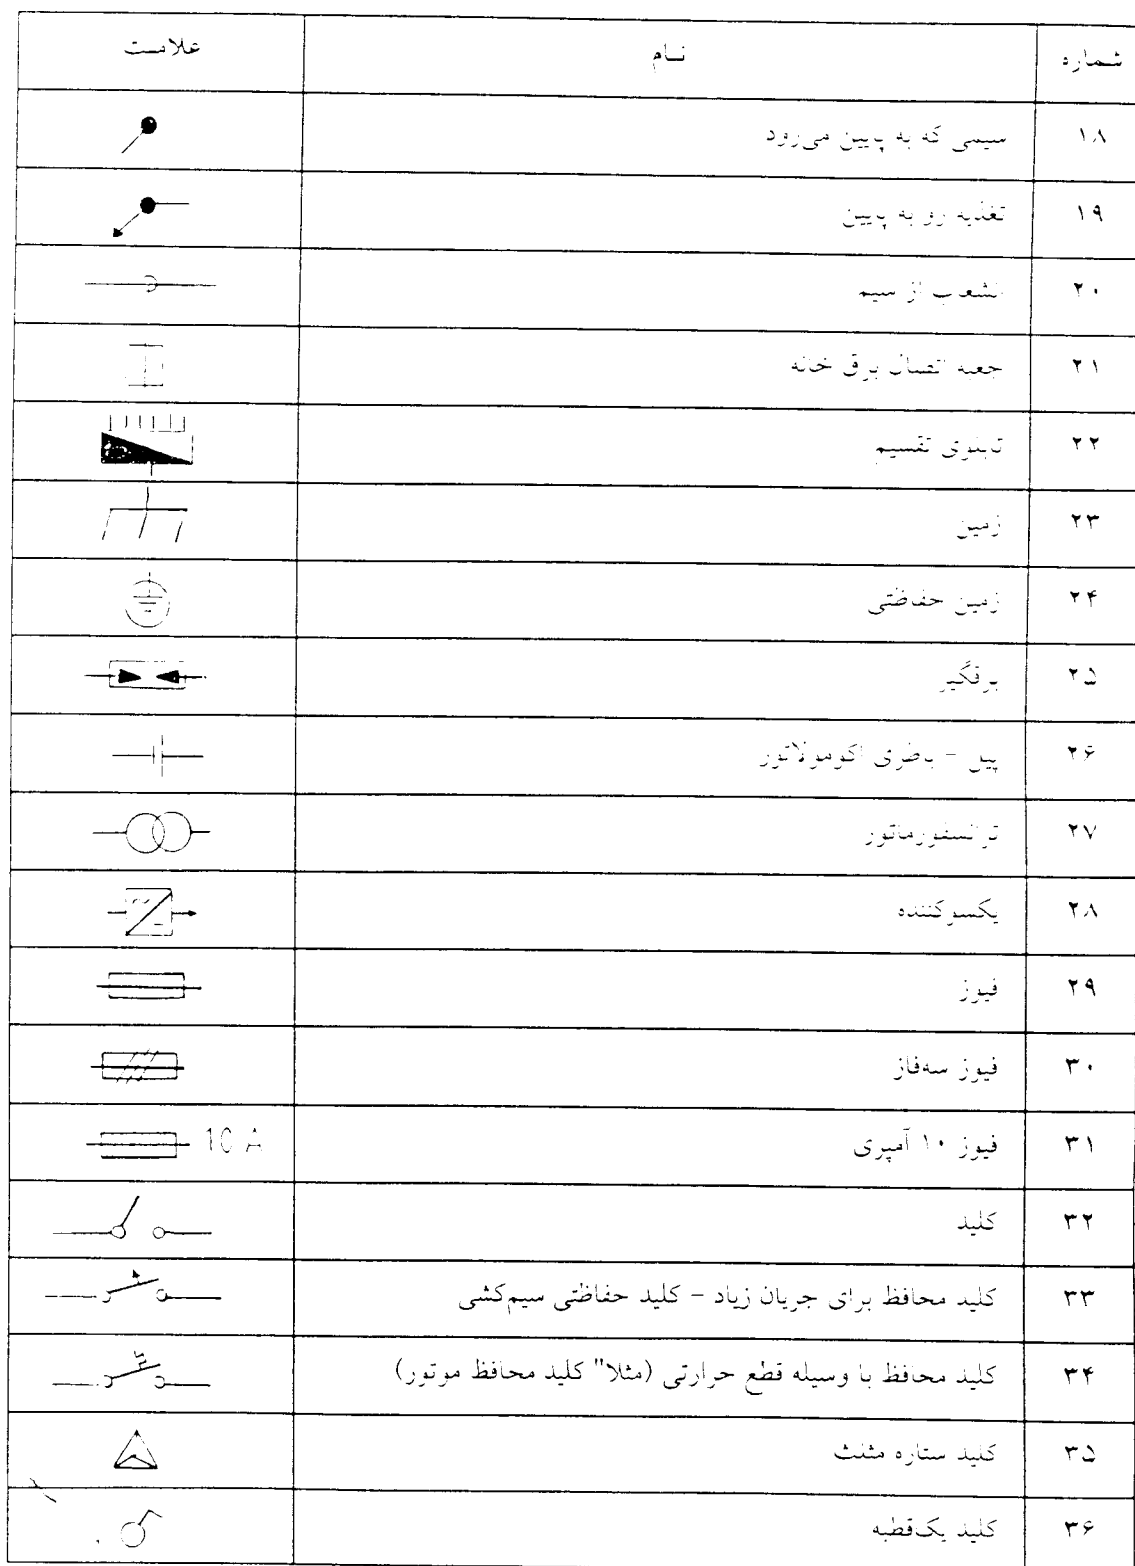 شماره نام علامت
۱۸ سیمی که به پایین می‌رود
۱۹ تغذیه رو به پایین
۲۰ انشعاب از سیم
۲۱ جعبه اتصال برق خانه
۲۲ تابلوی تقسیم
۲۳ زمین
۲۴ زمین حفاظتی
۲۵ برقگیر
۲۶ پیل - باطری اکومولاتور
۲۷ ترانسفورماتور
۲۸ یکسوکننده
۲۹ فیوز
۳۰ فیوز سه‌فاز
۳۱ فیوز ۱۰ آمپری 10 A
۳۲ کلید
۳۳ کلید محافظ برای جریان زیاد - کلید حفاظتی سیم‌کشی
۳۴ کلید محافظ با وسیله قطع حرارتی (مثلا" کلید محافظ موتور)
۳۵ کلید ستاره مثلث
۳۶ کلید یک‌قطبه